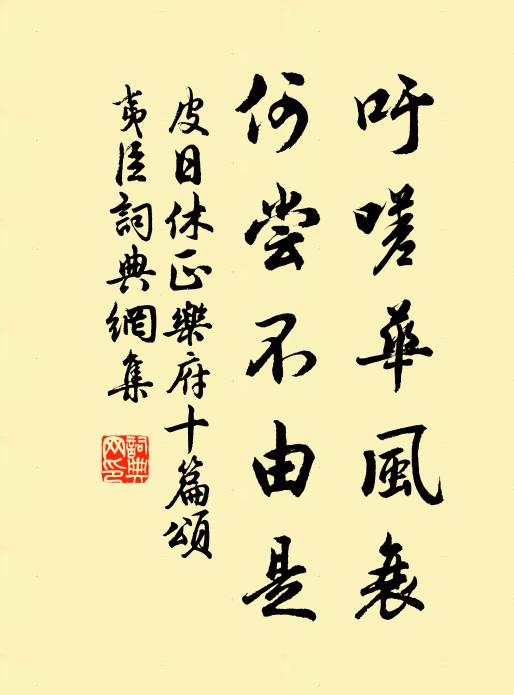 吁嗟華風衰
何嘗不由是
皮日休正樂府十篇頌
夷臣詞典網集
詞典网印